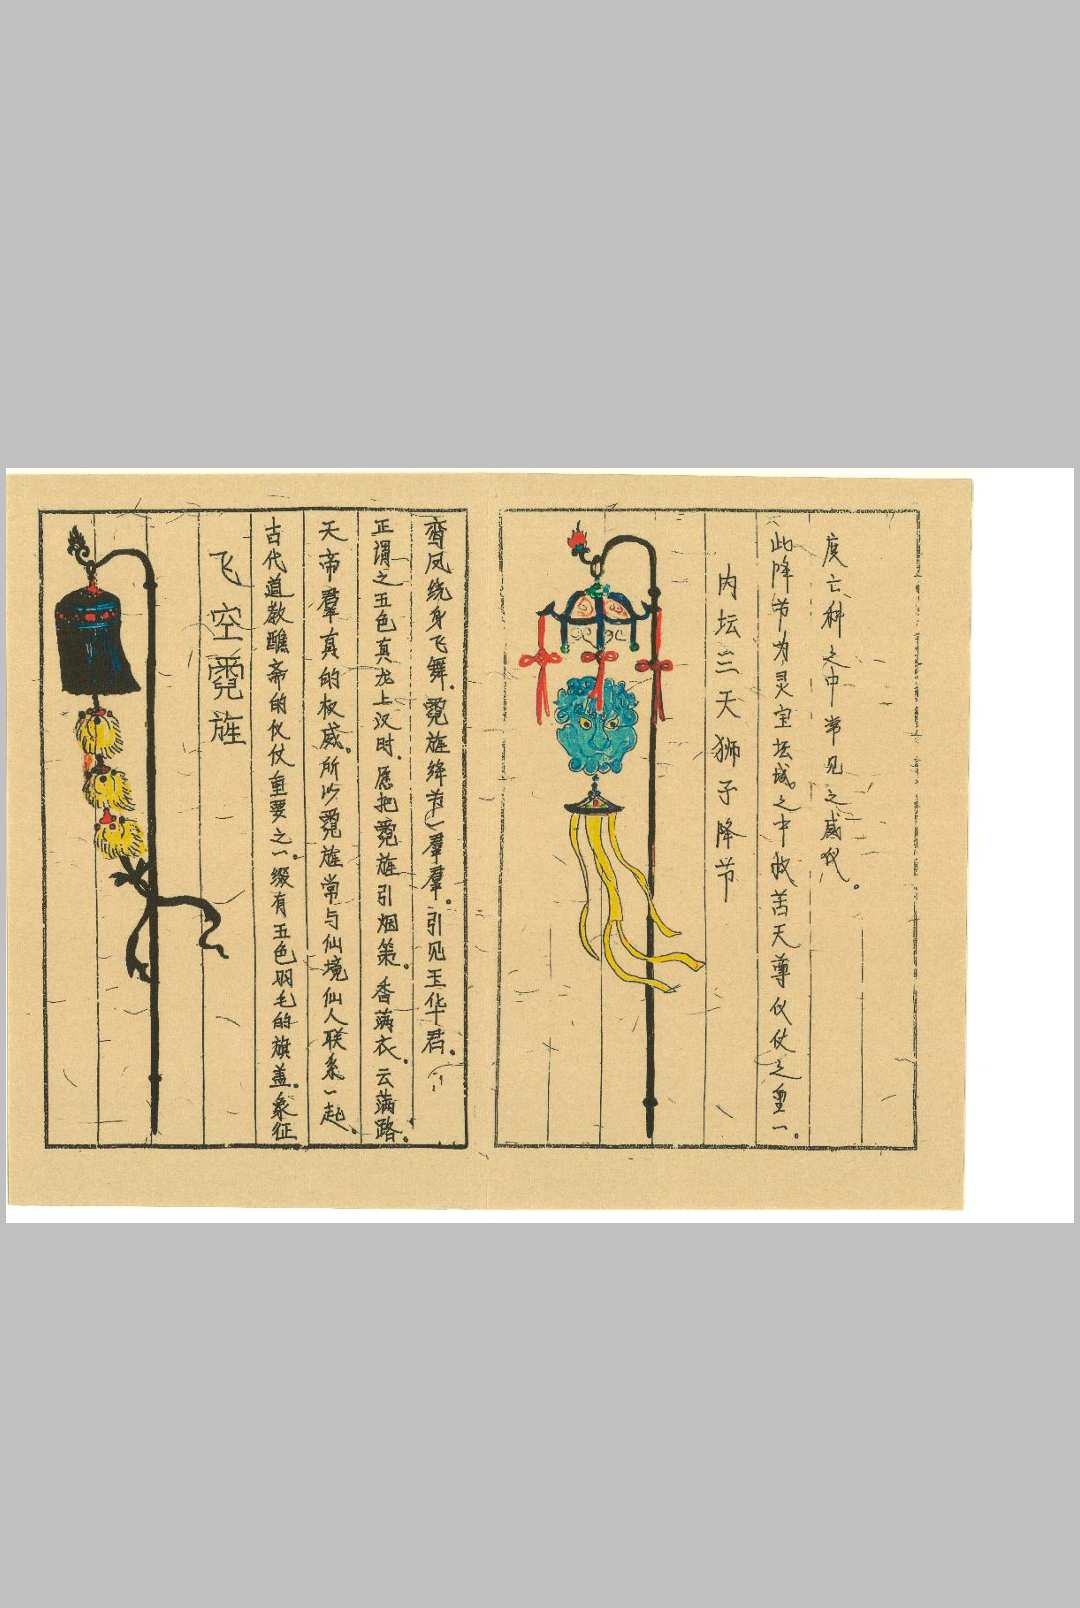 飞空霓旌
古代道教醮斋的仪仗重要之一。缀有五色羽毛的旗盖。象征
天帝羣真的权威。所以霓旌常与仙境仙人联系一起。
正谓之五色真龙上汉时.愿把霓旌引烟策。香满衣。云满路。
鸾凤绕身飞舞.霓旌绛节一羣羣。引见玉华君。
内坛三天狮子降节
此降节为灵宝坛域之中救苦天尊仪仗之重一。
度亡科之中常见之威仪。